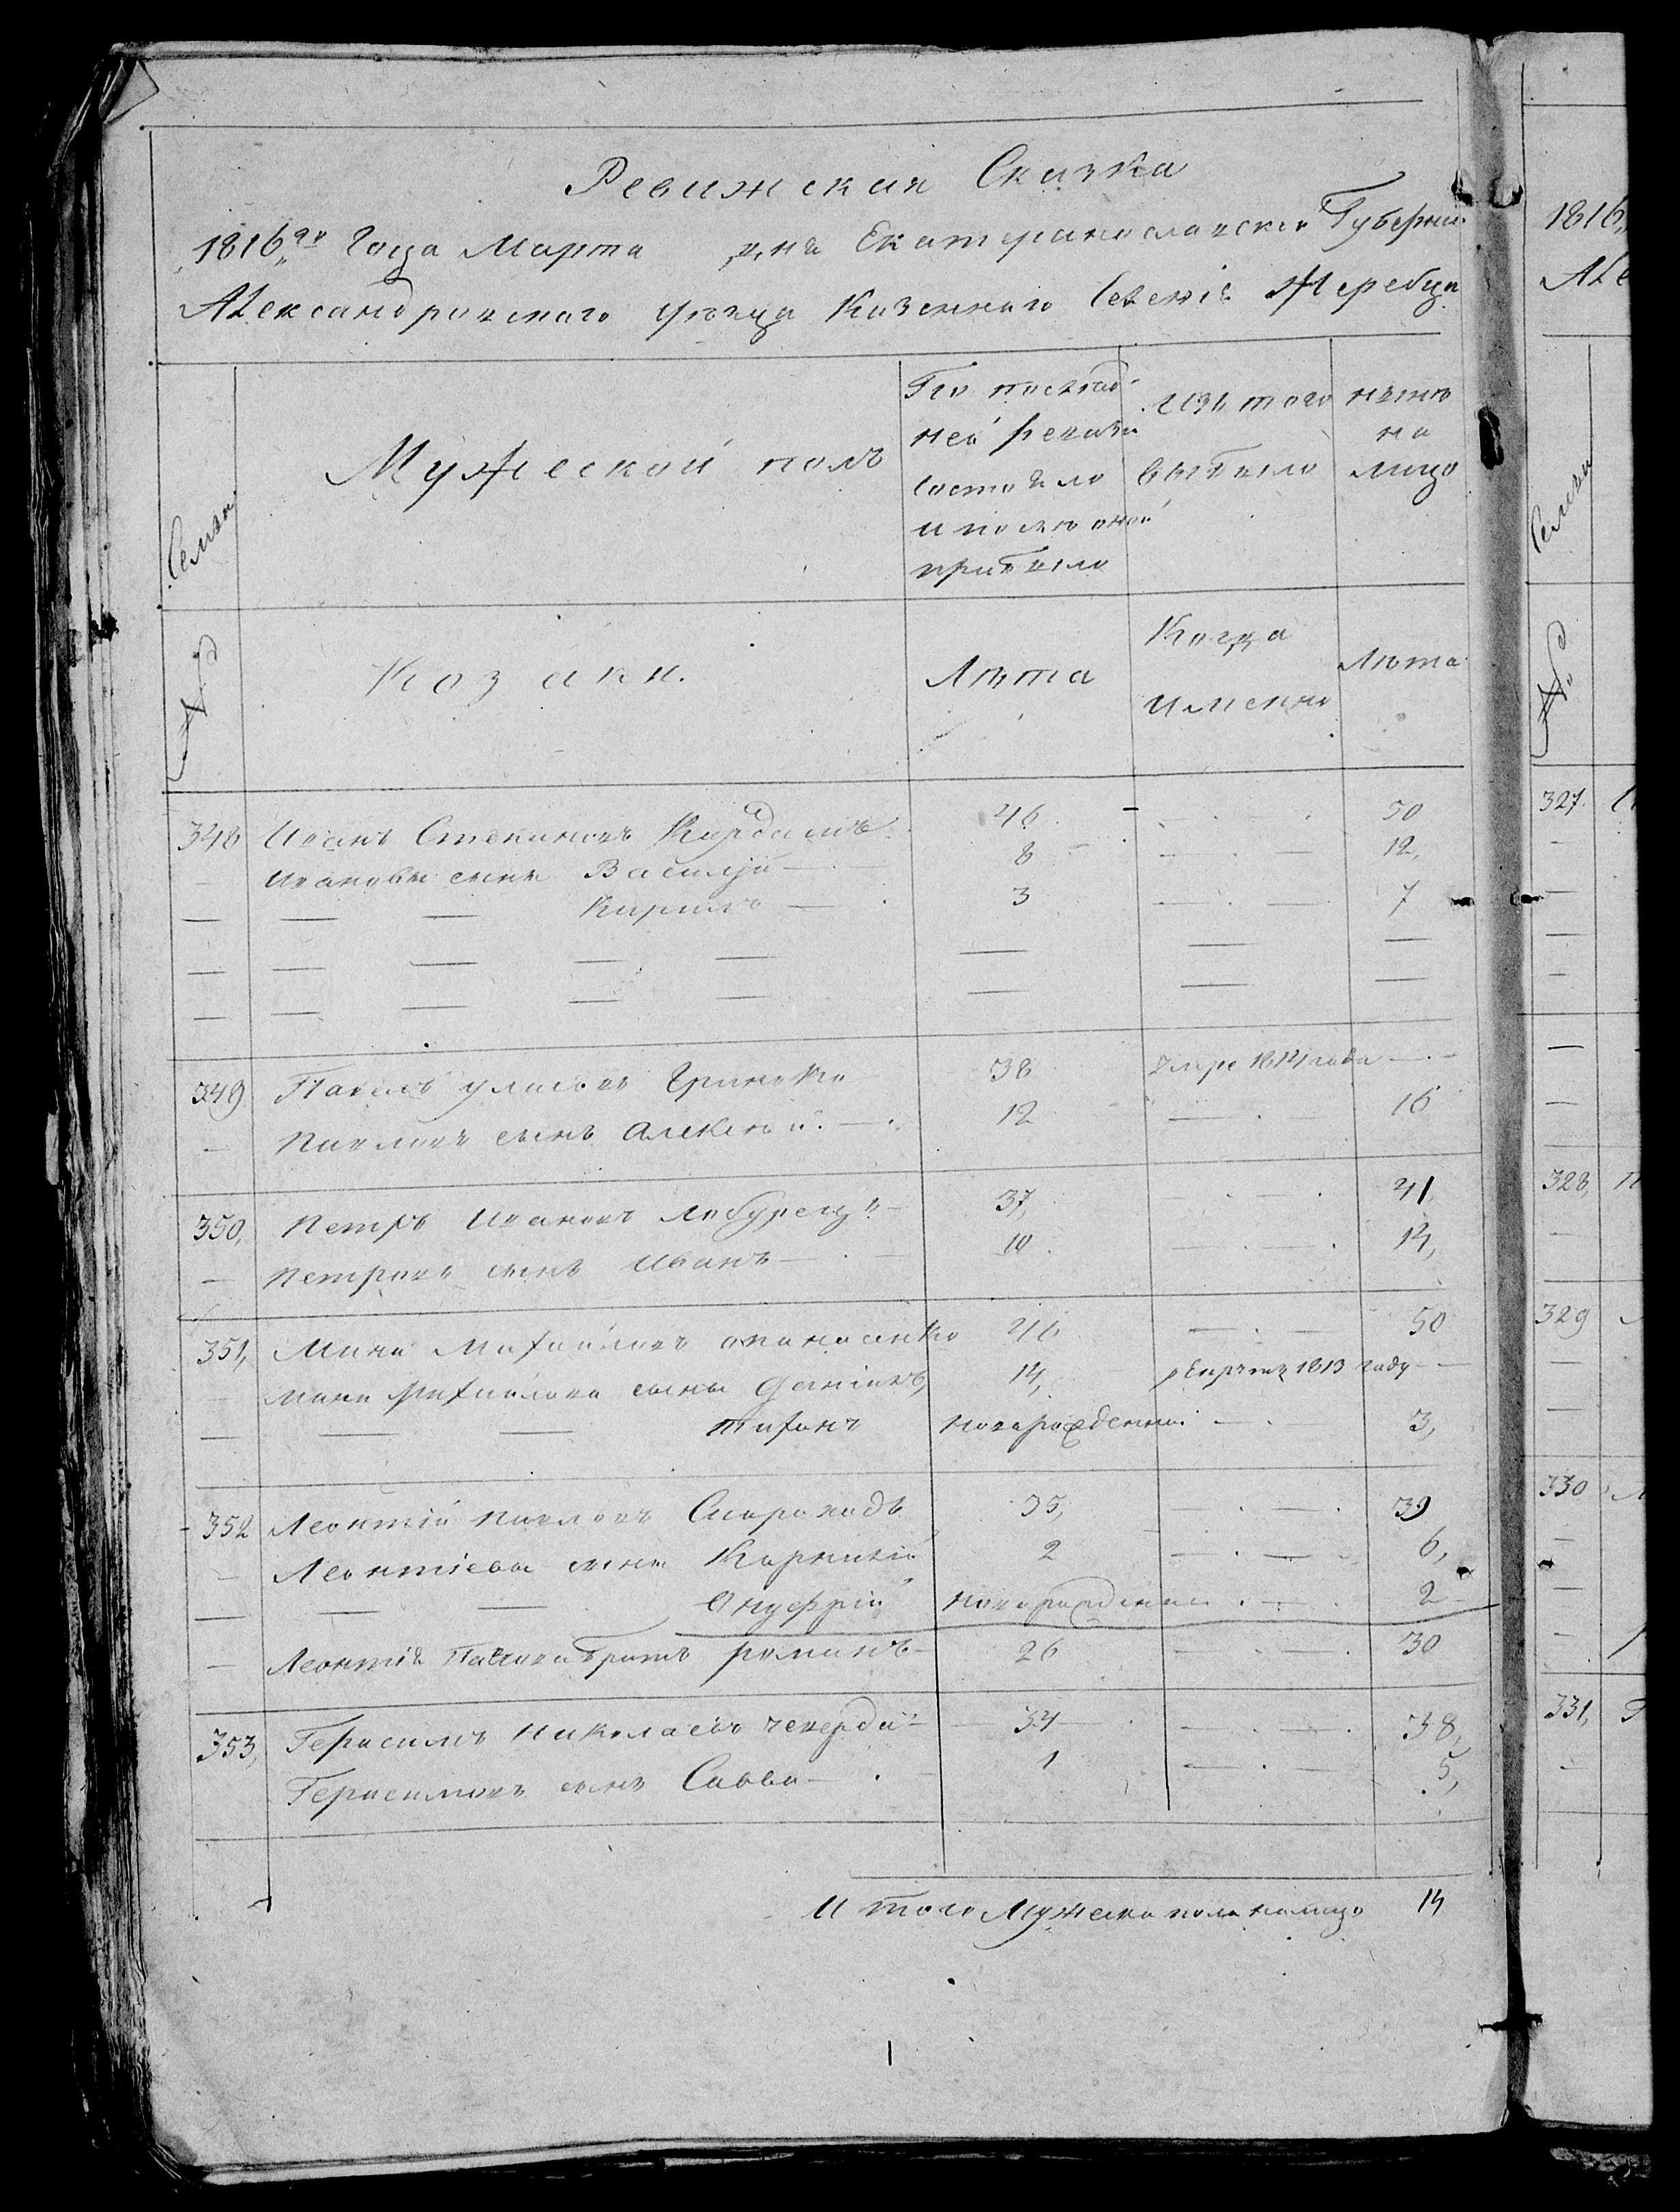 Ревижская Сказка
1816го Года Марта дня Екатеринославской Губернии
Александровского уезда Казенного Селения Жеребца
Семьи
Мужеской полъ
По послед-
ней ревизи
состояло
и после оной
прибыло
Изъ того
выбыло
ныне
на
лицо
№
Козаки.
Лета
Когда
именно
Лета
348 Иванъ Степановъ 46 50
Ивановы сыны Василій 8 12,
Кирилъ 3 7
349 Павелъ Гринько 38 умре 1814 года
Павловъ сынъ Алексей 12 16
350, Петръ Ивановъ 37, 41,
Петровъ сынъ Иванъ 10 14,
351, Мина Михайловъ опанасенко 46 50
Мини Михайлова сыны Даніилъ, 14, 1813 году
тихонъ новорожденный 3,
352 Леонтій Павловъ Скороходъ 35, 39
Леонтіевы сыны Корнилій 2 6,
Онуфрій новорожденный 2
Леонтія Павлова братъ романъ 26 30
353, Герасимъ Николаевъ 34 38,
Герасимовъ сынъ Савва 1 5,
Итого Мужеска пола налицо 14
1816
Але
Семьи
№
327
328,
329
330
331,